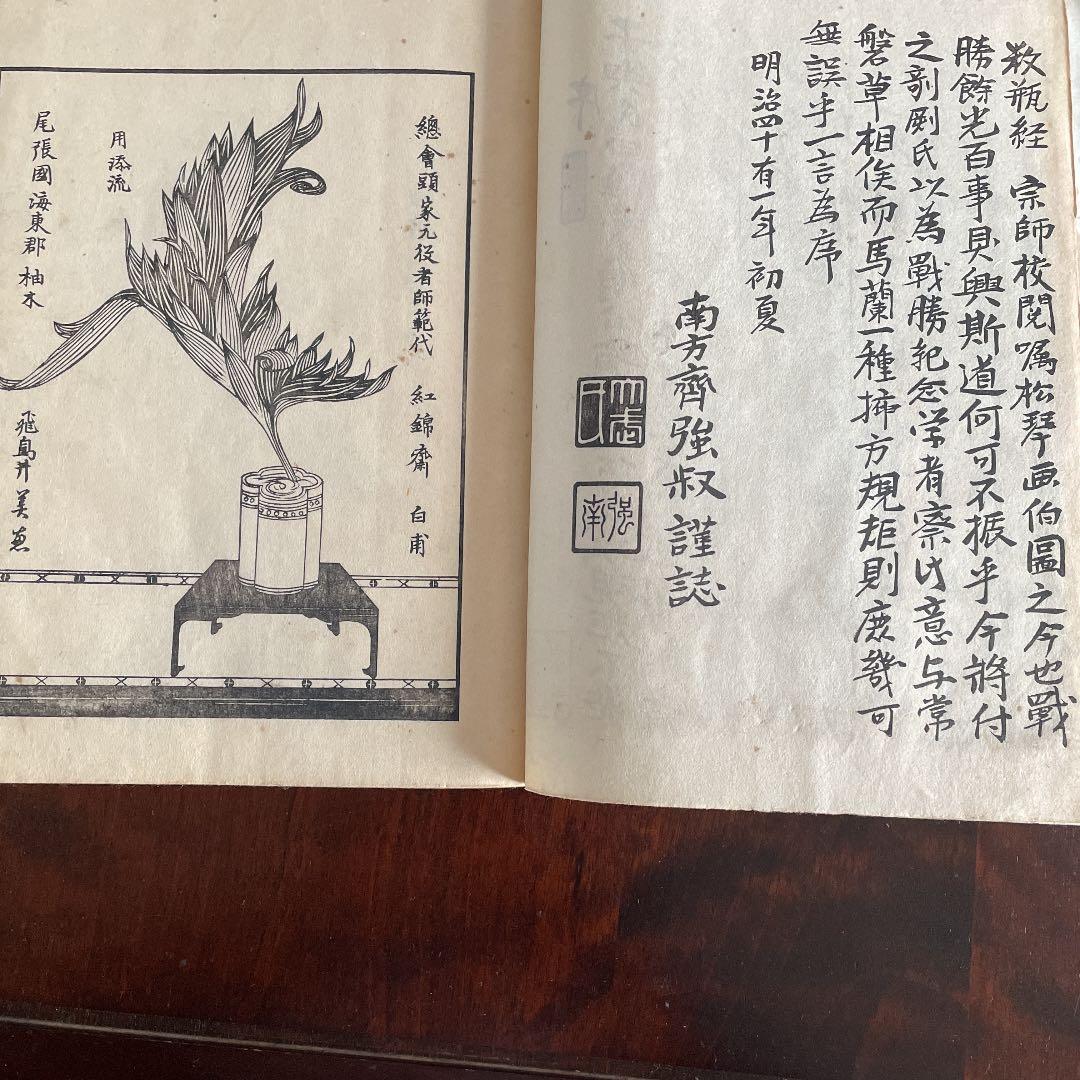 数瓶経 宗師校閲嘱松琴画伯圖之今也戰
勝餘光百事具興斯道何可不振乎今將付
之剞劂氏以為戰勝紀念学者察此意与常
磐草相俟而馬蘭一種挿方規矩則庶幾可
無誤乎一言為序
明治四十有一年初夏
南方齊強叔謹誌
總會頭家元役者師範代 紅錦齋 白甫
用添流
尾張國海東郡柚木
飛鳥井美